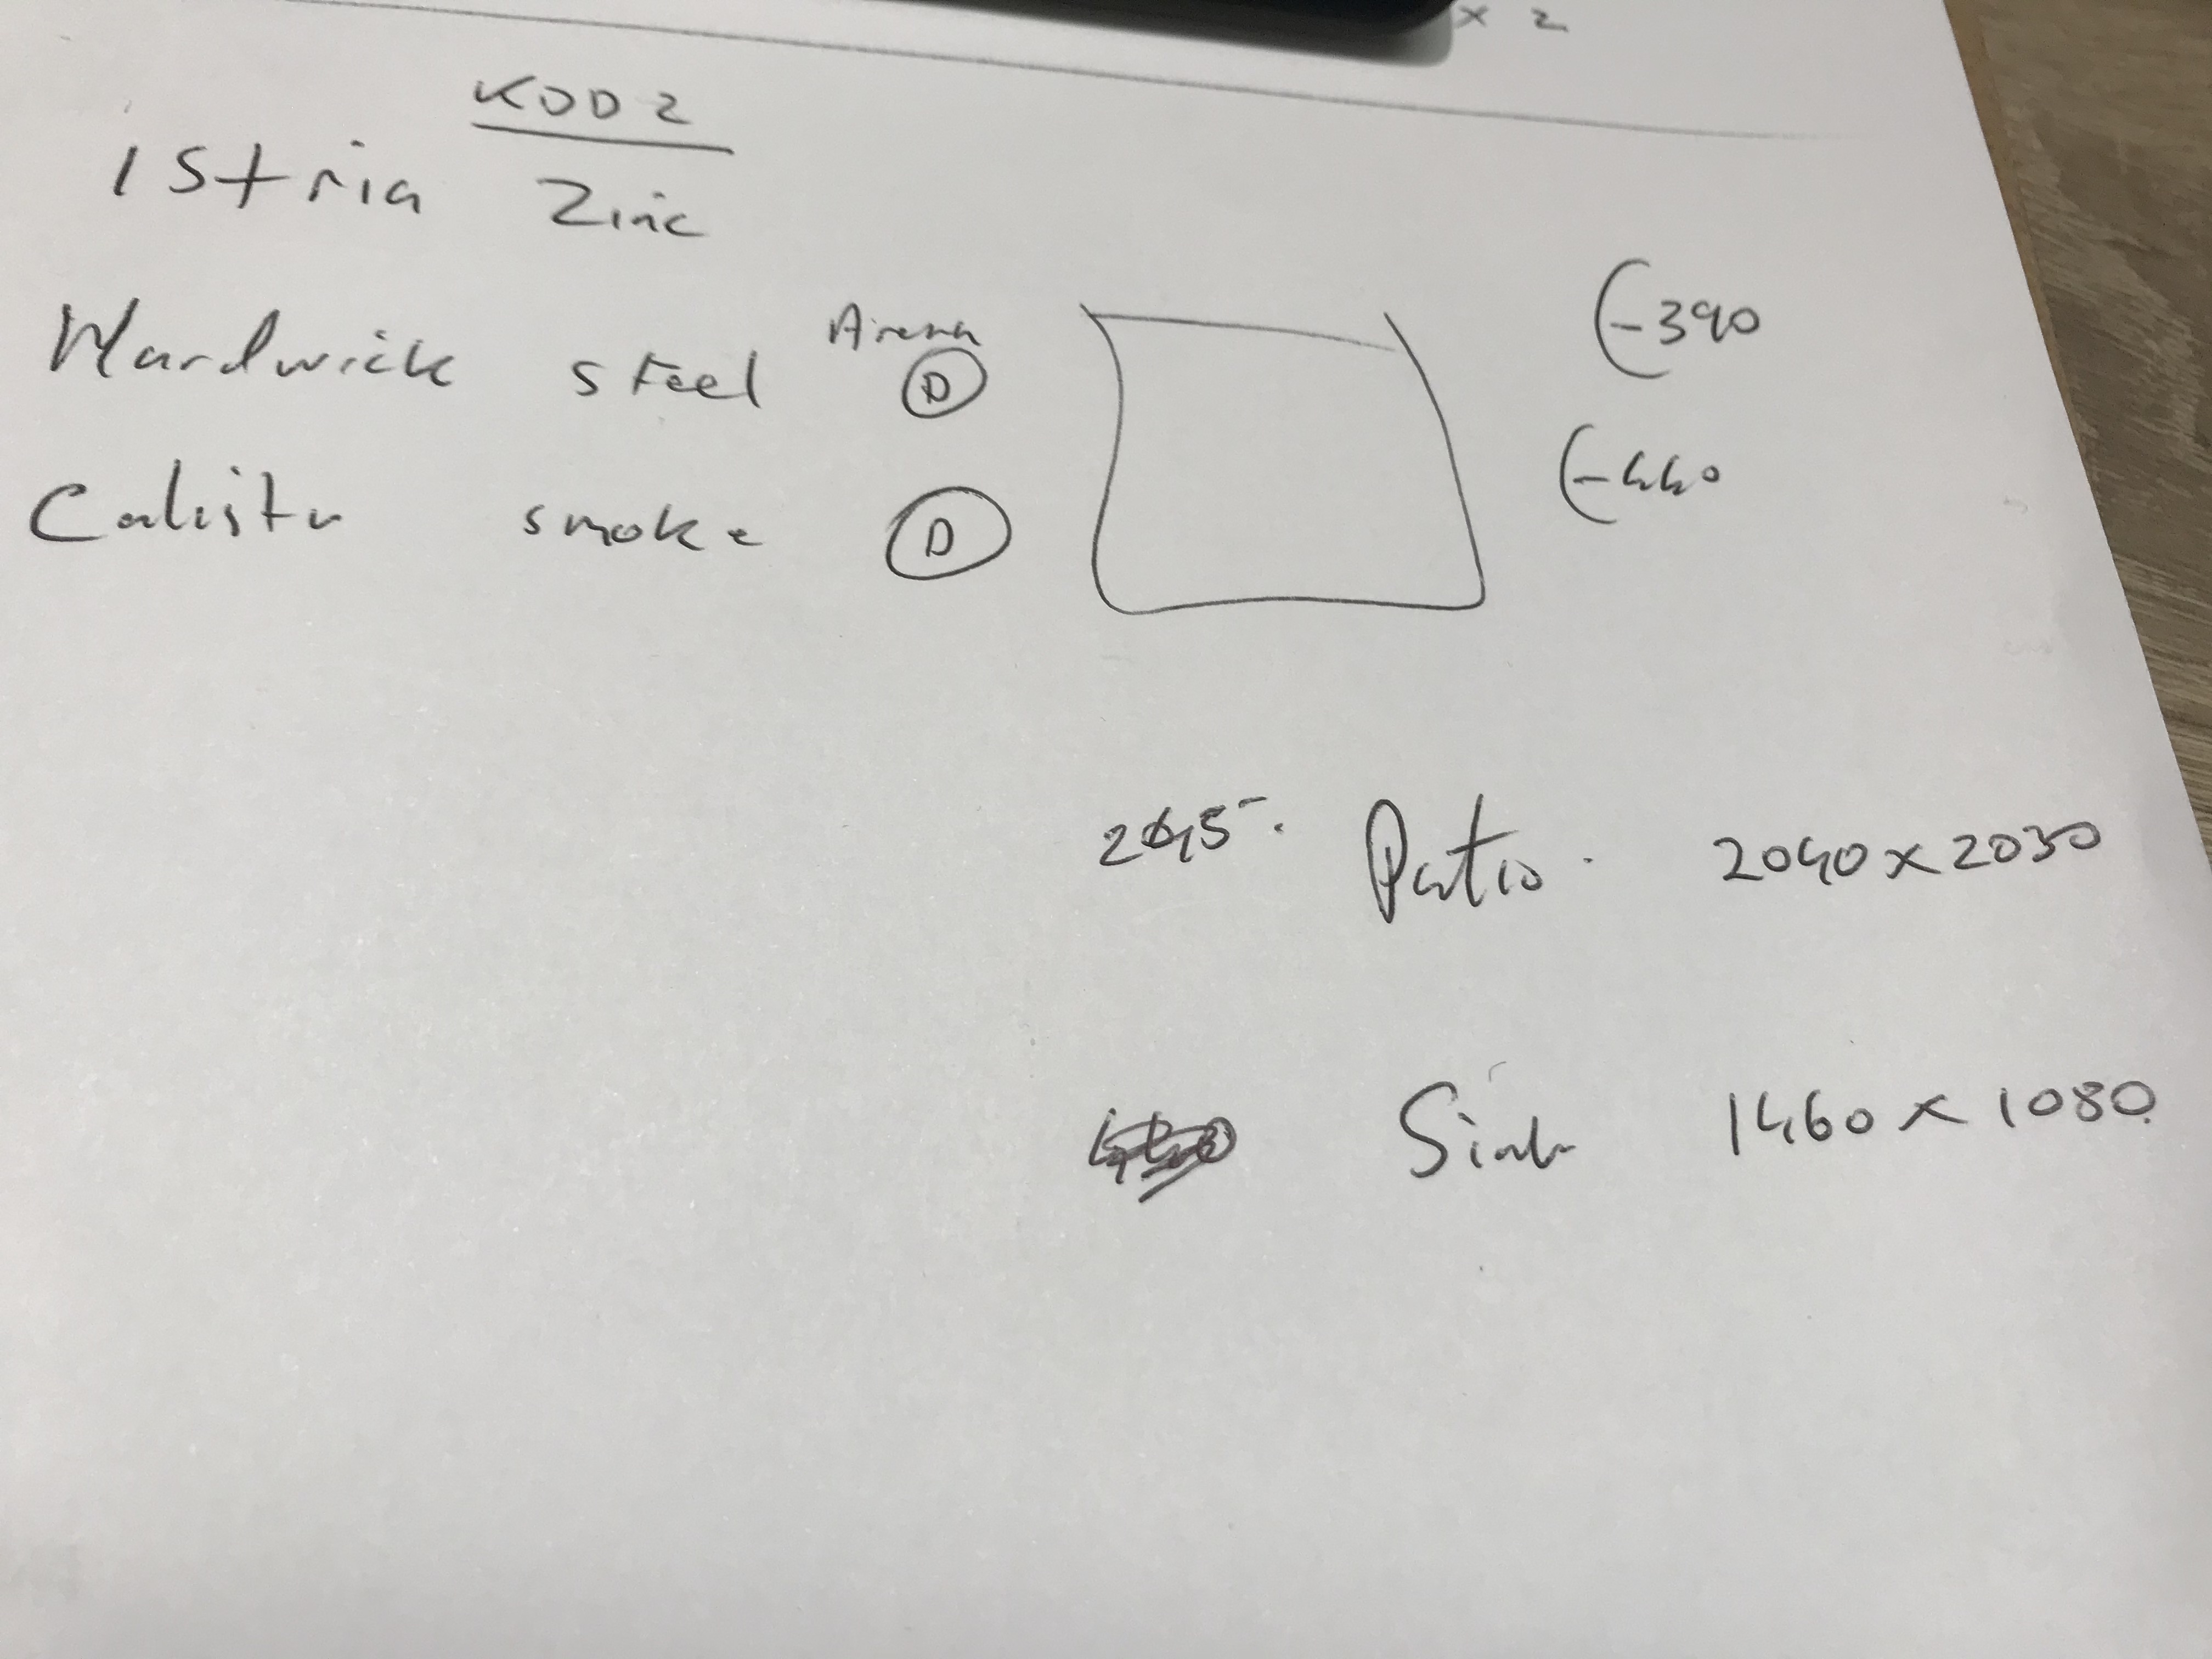 x 2
KOD2
Istria Zinc
Hardwick steel Arena D
-390
Calista smoke D
-440
Patio. 2040 x 2030
Sink 1460 x 1080